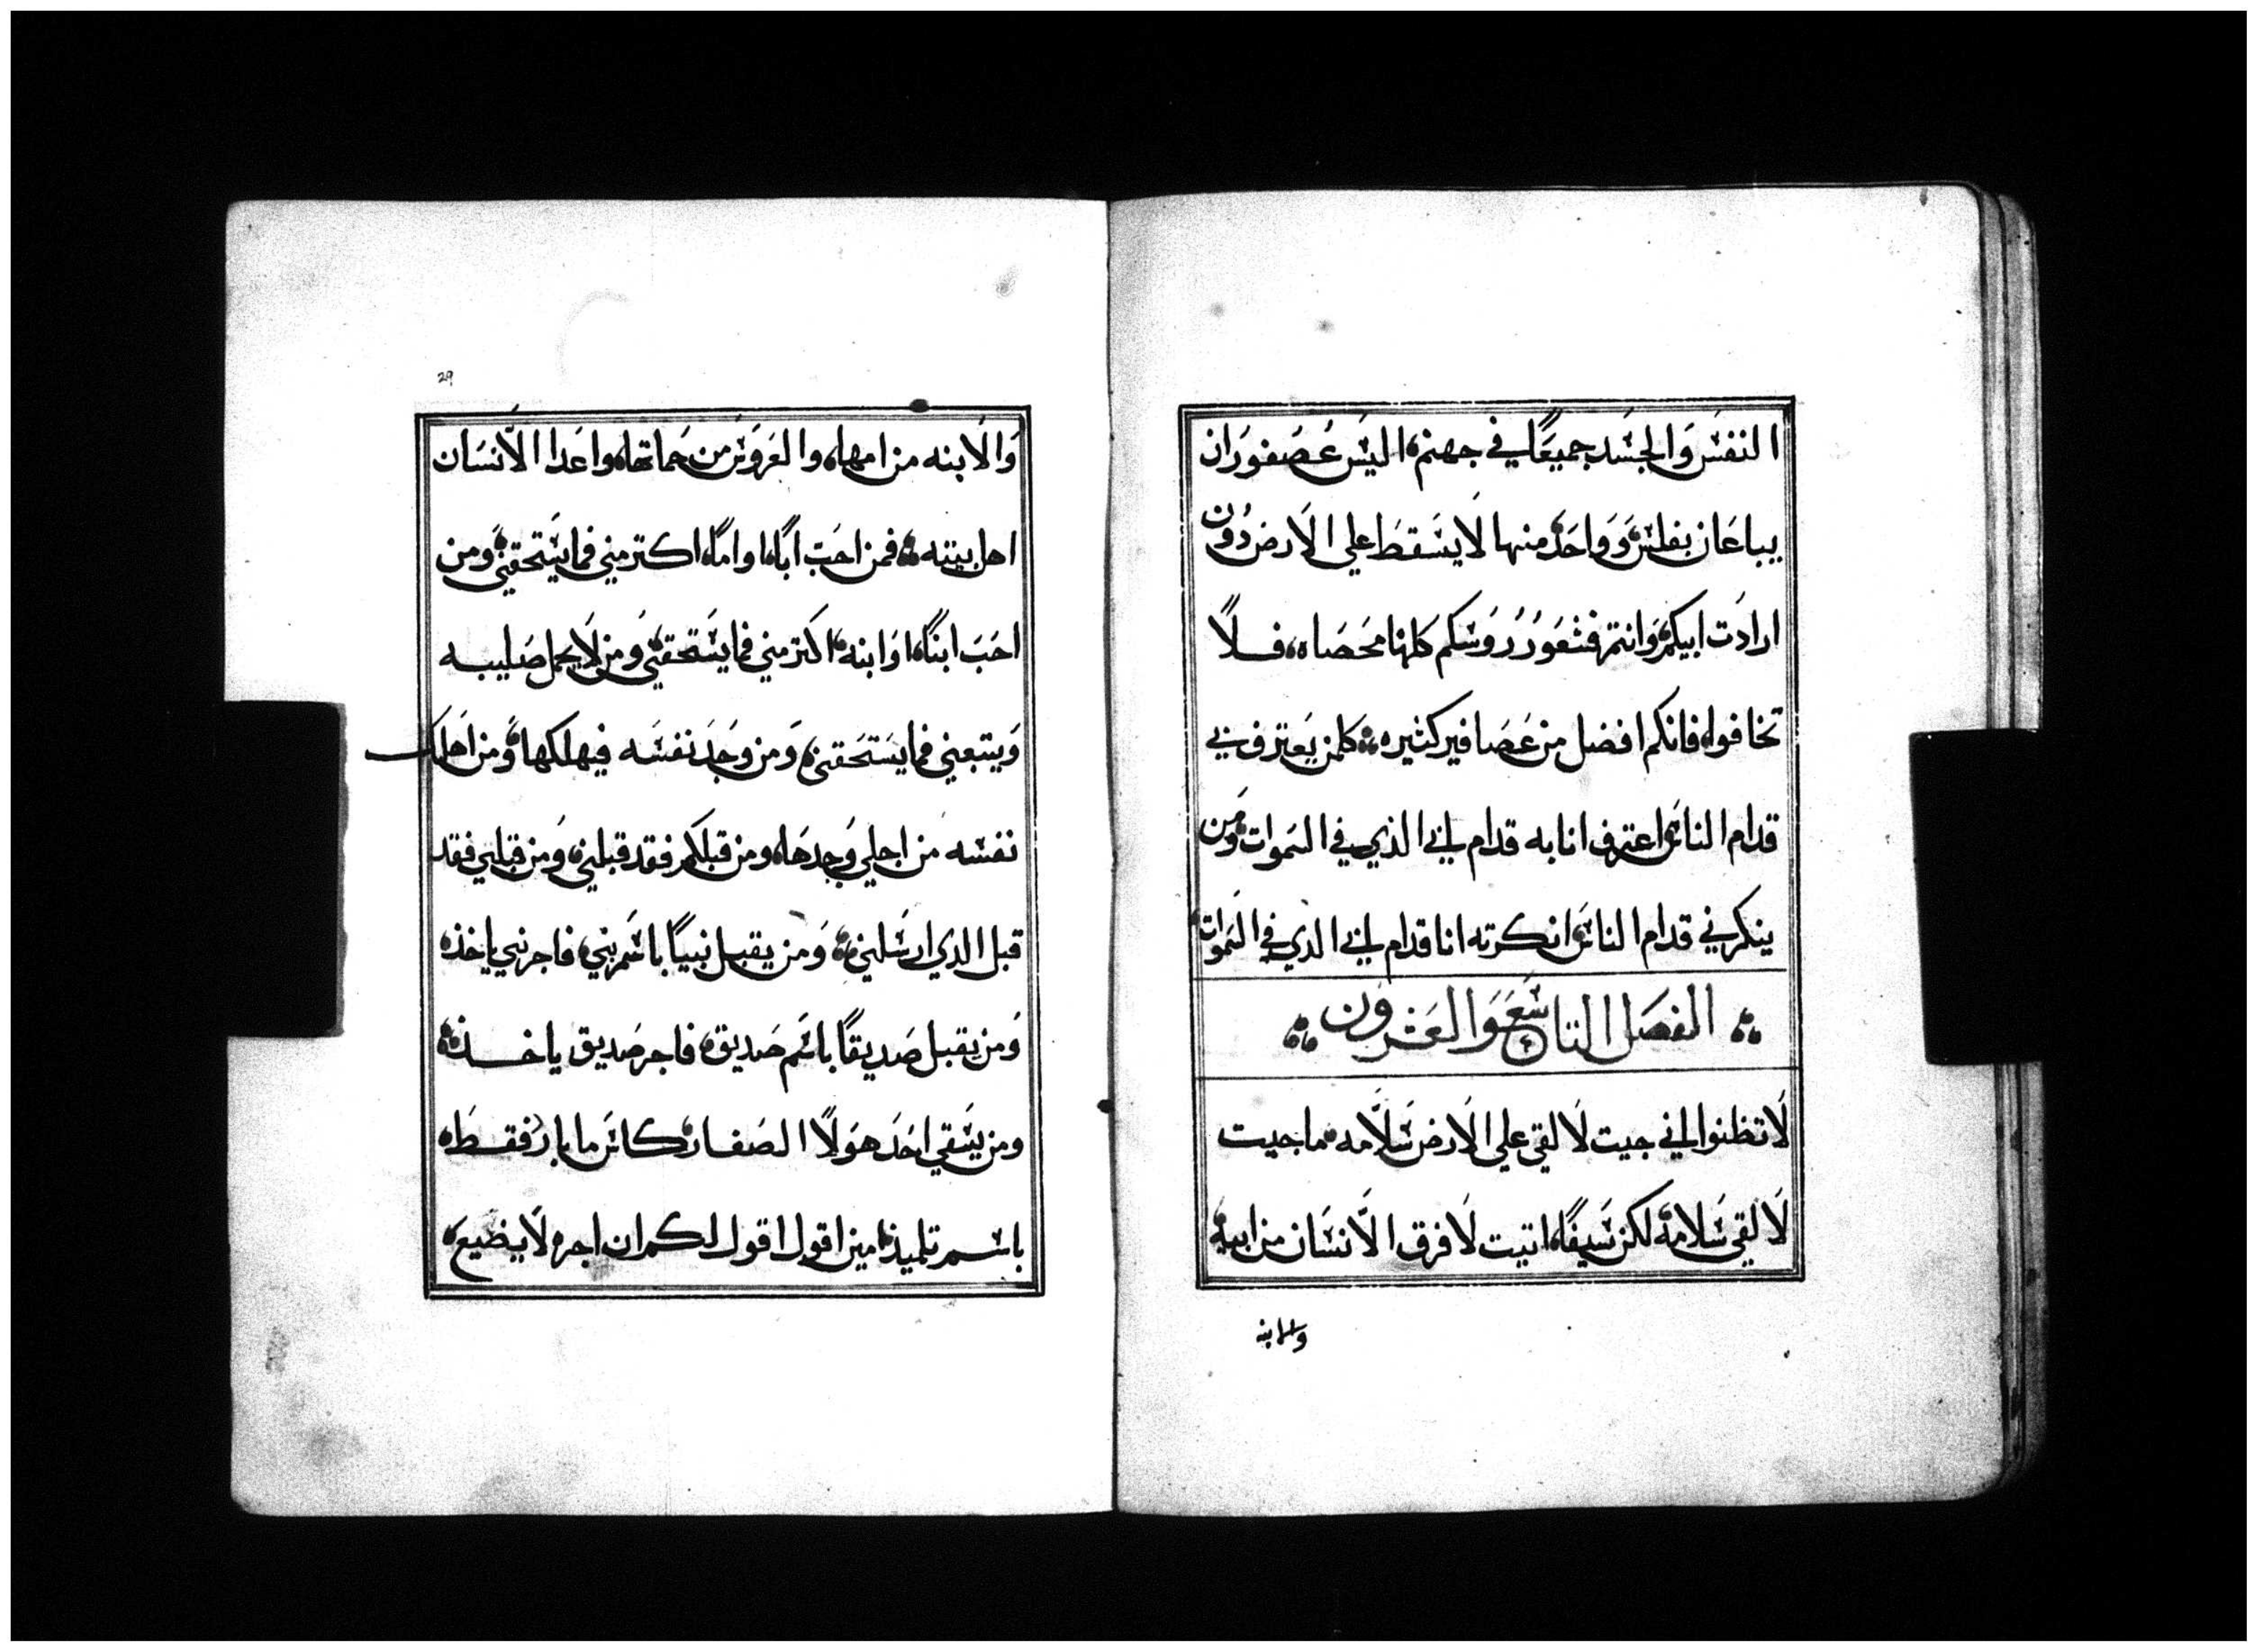 النفس والجسد جميعًا في جهنم، اليس عُصفوران
يباعان بفلس، وواحد منها لا يسقط علي الارض دون
ارادت ابيكم، وانتم فشعور روسكم كلها محصاه، فلا
تخافوا، فانكم افضل من عصافير كثيره، كلمن يعترف بي
قدام الناس، اعترف انا به قدام ابي الذي في السموات، ومن
ينكرني قدام الناس، انكرته انا قدام ابي الدي في السموات،
الفصل التاسع والعشرون
لا تظنوا اني جيت لالقي علي الارض سلامه، ما جيت
لالقي سلامة، لكن سيفًا، اتيت لافرق الانسان من ابيه،
والابنه
29
والابنه من امها، والعروس من حماتها، واعدا الانسان
اهل بيته، فمن احب ابًا، او امًا، اكتر مني فما يستحقني، ومن
احب ابنًا، او ابنه، اكتر مني فما يستحقني، ومن لا يحمل صليبه
ويتبعني فما يستحقني، ومن وجد نفسه فيهلكها، ومن اهلك
نفسه من اجلي وجدها، ومن قبلكم فقد قبلني، ومن قبلني فقد
قبل الدي ارسلني، ومن يقبل نبيًا باسم نبي، فاجر نبي ياخذه
ومن يقبل صديقًا باسم صديق، فاجر صديق ياخذه،
ومن يسقي احد هولا الصغار، كاس ما بارد فقط،
باسم تلميذ، امين اقول اقول لكم ان اجره لا يضيع،